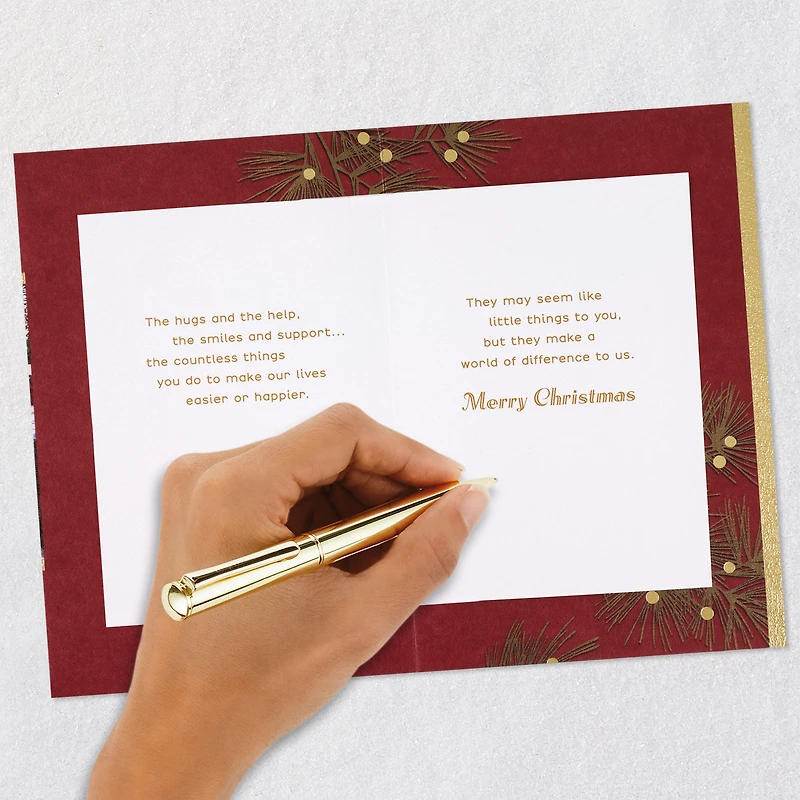 The hugs and the help,
the smiles and support...
the countless things
you do to make our lives
easier or happier.
They may seem like
little things to you,
but they make a
world of difference to us.
Merry Christmas